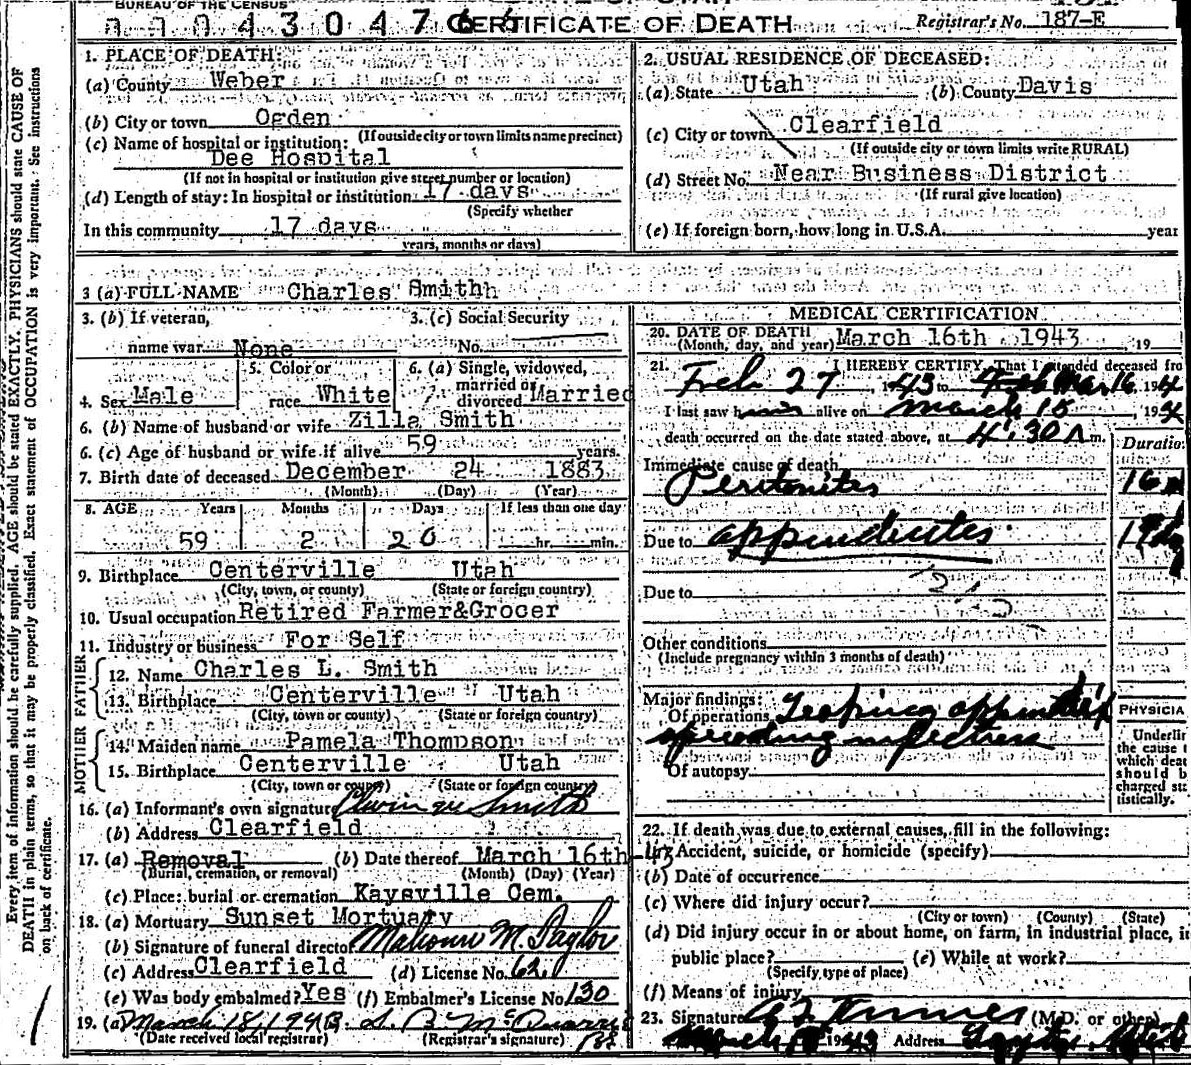 BUREAU OF THE CENSUS
CERTIFICATE OF DEATH
Registrar's No. 187-E
1. PLACE OF DEATH:
(a) County Weber
(b) City or town Ogden
(If outside city or town limits name precinct)
(c) Name of hospital or institution:
Dee Hospital
(If not in hospital or institution give street number or location)
(d) Length of stay: In hospital or institution 17 days
(Specify whether
In this community 17 days
years, months or days)
2. USUAL RESIDENCE OF DECEASED:
(a) State Utah (b) County Davis
(c) City or town Clearfield
(If outside city or town limits write RURAL)
(d) Street No. Near Business District
(If rural give location)
(e) If foreign born, how long in U.S.A. year
3 (a) FULL NAME Charles Smithh
3. (b) If veteran,
name war None
3. (c) Social Security
No.
4. Sex Male
5. Color or
race White
6. (a) Single, widowed,
married or
divorced Married
6. (b) Name of husband or wife Zilla Smith
6. (c) Age of husband or wife if alive 59 years.
7. Birth date of deceased December 24 1883
(Month) (Day) (Year)
8. AGE Years Months Days If less than one day
59 2 20 hr. min.
9. Birthplace Centerville Utah
(City, town, or county) (State or foreign country)
10. Usual occupation Retired Farmer&Grocer
11. Industry or business For Self
FATHER
12. Name Charles L. Smith
13. Birthplace Centerville Utah
(City, town or county) (State or foreign country)
MOTHER
14. Maiden name Pamela Thompson
15. Birthplace Centerville Utah
(City, town or county) (State or foreign country)
16. (a) Informant's own signature Smith
(b) Address Clearfield
17. (a) Removal (b) Date thereof March 16th-43
(Burial, cremation, or removal) (Month) (Day) (Year)
(c) Place: burial or cremation Kaysville Cem.
18. (a) Mortuary Sunset Mortuary
(b) Signature of funeral director M.
(c) Address Clearfield (d) License No. 620
(e) Was body embalmed? Yes (f) Embalmer's License No. 130
19. (a) March 18, 1943.
(Date received local registrar) (Registrar's signature)
MEDICAL CERTIFICATION
20. DATE OF DEATH March 16th 1943, 19
(Month, day, and year)
21. I HEREBY CERTIFY, That I attended deceased fro
Feb 27 1943 to Mar 16, 194
I last saw him alive on March 15, 194
death occurred on the date stated above, at 4:30 A m.
Duratio
Immediate cause of death
Peritonitis 16
Due to appendicites
Due to
Other conditions
(Include pregnancy within 3 months of death)
Major findings:
Of operations
spreading infection
Of autopsy
PHYSICIA
Underlin
the cause t
which deat
should b
charged sta
tistically.
22. If death was due to external causes, fill in the following:
Accident, suicide, or homicide (specify)
(b) Date of occurrence
(c) Where did injury occur?
(City or town) (County) (State)
(d) Did injury occur in or about home, on farm, in industrial place, i
public place? (e) While at work?
(Specify type of place)
(f) Means of injury
23. Signature (M.D. or other)
March 1943 Address
Every item of information should be carefully supplied. AGE should be stated EXACTLY. PHYSICIANS should state CAUSE OF
DEATH in plain terms, so that it may be properly classified. Exact statement of OCCUPATION is very important. See instructions
on back of certificate.